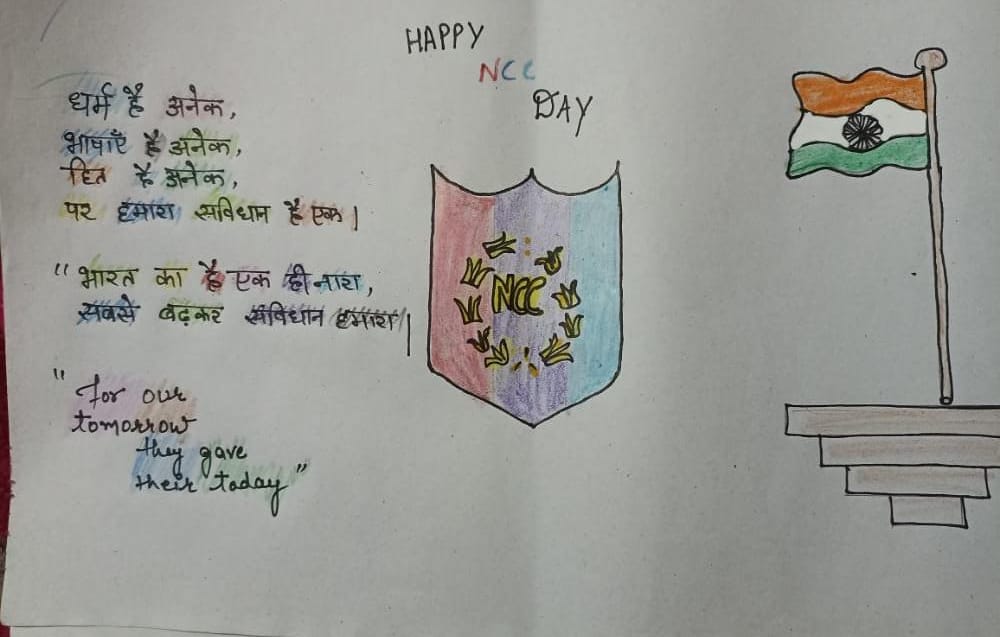 HAPPY
NCC
DAY
धर्म है अनेक,
भाषाएँ है अनेक,
हित है अनेक,
पर हमारा संविधान है एक|
"भारत का है एक ही नारा,
सबसे बढ़कर संविधान हमारा|
"for our
tomorrow
they gave
their today"
NCC